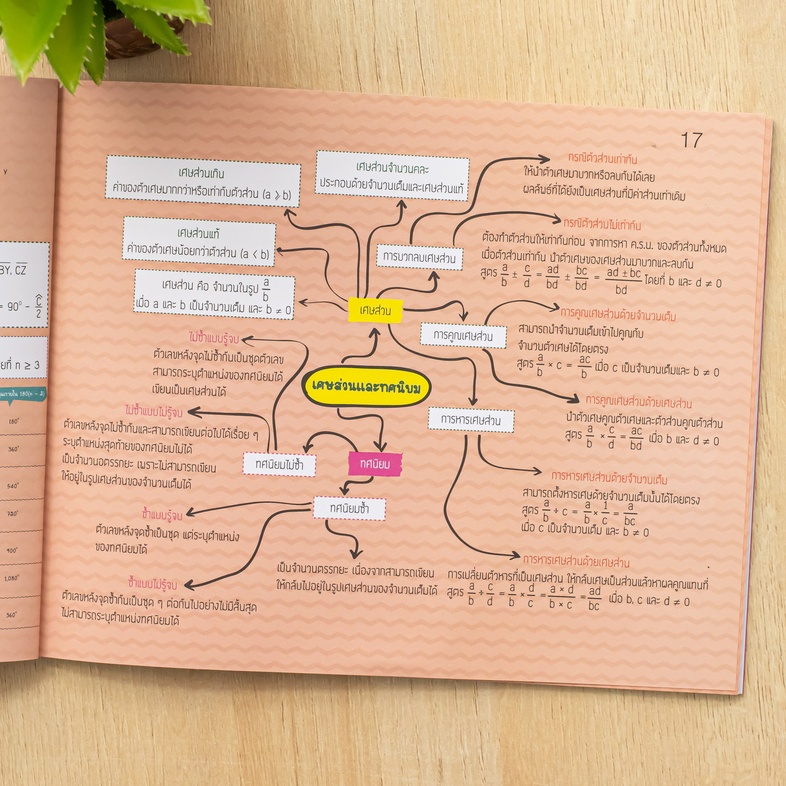 17
เศษส่วนเกิน
ค่าของตัวเศษมากกว่าหรือเท่ากับตัวส่วน (a ⩾ b)
เศษส่วนจำนวนคละ
ประกอบด้วยจำนวนเต็มและเศษส่วนแท้
กรณีตัวส่วนเท่ากัน
ให้นำตัวเศษมาบวกหรือลบกันได้เลย
ผลลัพธ์ที่ได้ยังเป็นเศษส่วนที่มีค่าส่วนเท่าเดิม
เศษส่วนแท้
ค่าของตัวเศษน้อยกว่าตัวส่วน (a < b)
การบวกลบเศษส่วน
กรณีตัวส่วนไม่เท่ากัน
ต้องทำตัวส่วนให้เท่ากันก่อน จากการหา ค.ร.น. ของตัวส่วนทั้งหมด
เมื่อตัวส่วนเท่ากัน นำตัวเศษของเศษส่วนมาบวกและลบกัน
สูตร a/b ± c/d = ad/bd ± bc/bd = ad ± bc/bd โดยที่ b และ d ≠ 0
เศษส่วน คือ จำนวนในรูป a/b
เมื่อ a และ b เป็นจำนวนเต็ม และ b ≠ 0
เศษส่วน
การคูณเศษส่วน
การคูณเศษส่วนด้วยจำนวนเต็ม
สามารถนำจำนวนเต็มเข้าไปคูณกับ
จำนวนตัวเศษได้โดยตรง
สูตร a/b × c = ac/b เมื่อ c เป็นจำนวนเต็มและ b ≠ 0
ไม่ซ้ำแบบรู้จบ
ตัวเลขหลังจุดไม่ซ้ำกันเป็นชุดตัวเลข
สามารถระบุตำแหน่งของทศนิยมได้
เขียนเป็นเศษส่วนได้
เศษส่วนและทศนิยม
การคูณเศษส่วนด้วยเศษส่วน
นำตัวเศษคูณตัวเศษและตัวส่วนคูณตัวส่วน
สูตร a/b × c/d = ac/bd เมื่อ b และ d ≠ 0
ไม่ซ้ำแบบไม่รู้จบ
ตัวเลขหลังจุดไม่ซ้ำกันและสามารถเขียนต่อไปได้เรื่อย ๆ
ระบุตำแหน่งสุดท้ายของทศนิยมไม่ได้
เป็นจำนวนอตรรกยะ เพราะไม่สามารถเขียน
ให้อยู่ในรูปเศษส่วนของจำนวนเต็มได้
การหารเศษส่วน
ทศนิยมไม่ซ้ำ
ทศนิยม
การหารเศษส่วนด้วยจำนวนเต็ม
สามารถตั้งหารเศษด้วยจำนวนเต็มนั้นได้โดยตรง
สูตร a/b ÷ c = a/b × 1/c = a/bc
เมื่อ c เป็นจำนวนเต็ม และ b ≠ 0
ทศนิยมซ้ำ
ซ้ำแบบรู้จบ
ตัวเลขหลังจุดซ้ำเป็นชุด แต่ระบุตำแหน่ง
ของทศนิยมได้
เป็นจำนวนตรรกยะ เนื่องจากสามารถเขียน
ให้กลับไปอยู่ในรูปเศษส่วนของจำนวนเต็มได้
การหารเศษส่วนด้วยเศษส่วน
การเปลี่ยนตัวหารที่เป็นเศษส่วน ให้กลับเศษเป็นส่วนแล้วหาผลคูณแทนที่
สูตร a/b ÷ c/d = a/b × d/c = a × d/b × c = ad/bc เมื่อ b, c และ d ≠ 0
ซ้ำแบบไม่รู้จบ
ตัวเลขหลังจุดซ้ำกันเป็นชุด ๆ ต่อกันไปอย่างไม่มีสิ้นสุด
ไม่สามารถระบุตำแหน่งทศนิยมได้
y
BY, CZ
= 90° - Ĉ/2
ยที่ n ≥ 3
180(n - 2)
180°
360°
540°
720°
900°
1,080°
360°